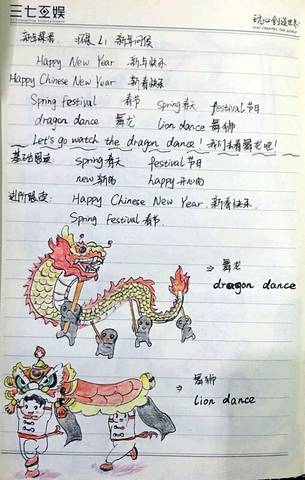 三七互娱
玩心创造世界
新年 L1 新年问候
Happy New Year 新年快乐
Happy Chinese New Year 新春快乐
Spring festival 春节 Spring 春天 festival 节日
dragon dance 舞龙 lion dance 舞狮
Let's go watch the dragon dance! 我们去看舞龙吧!
基础 Spring 春天 festival 节日
new 新的 happy 开心的
进阶 Happy Chinese New Year. 新春快乐.
Spring Festival 春节.
⇒ 舞龙
dragon dance
⇒ 舞狮
lion dance